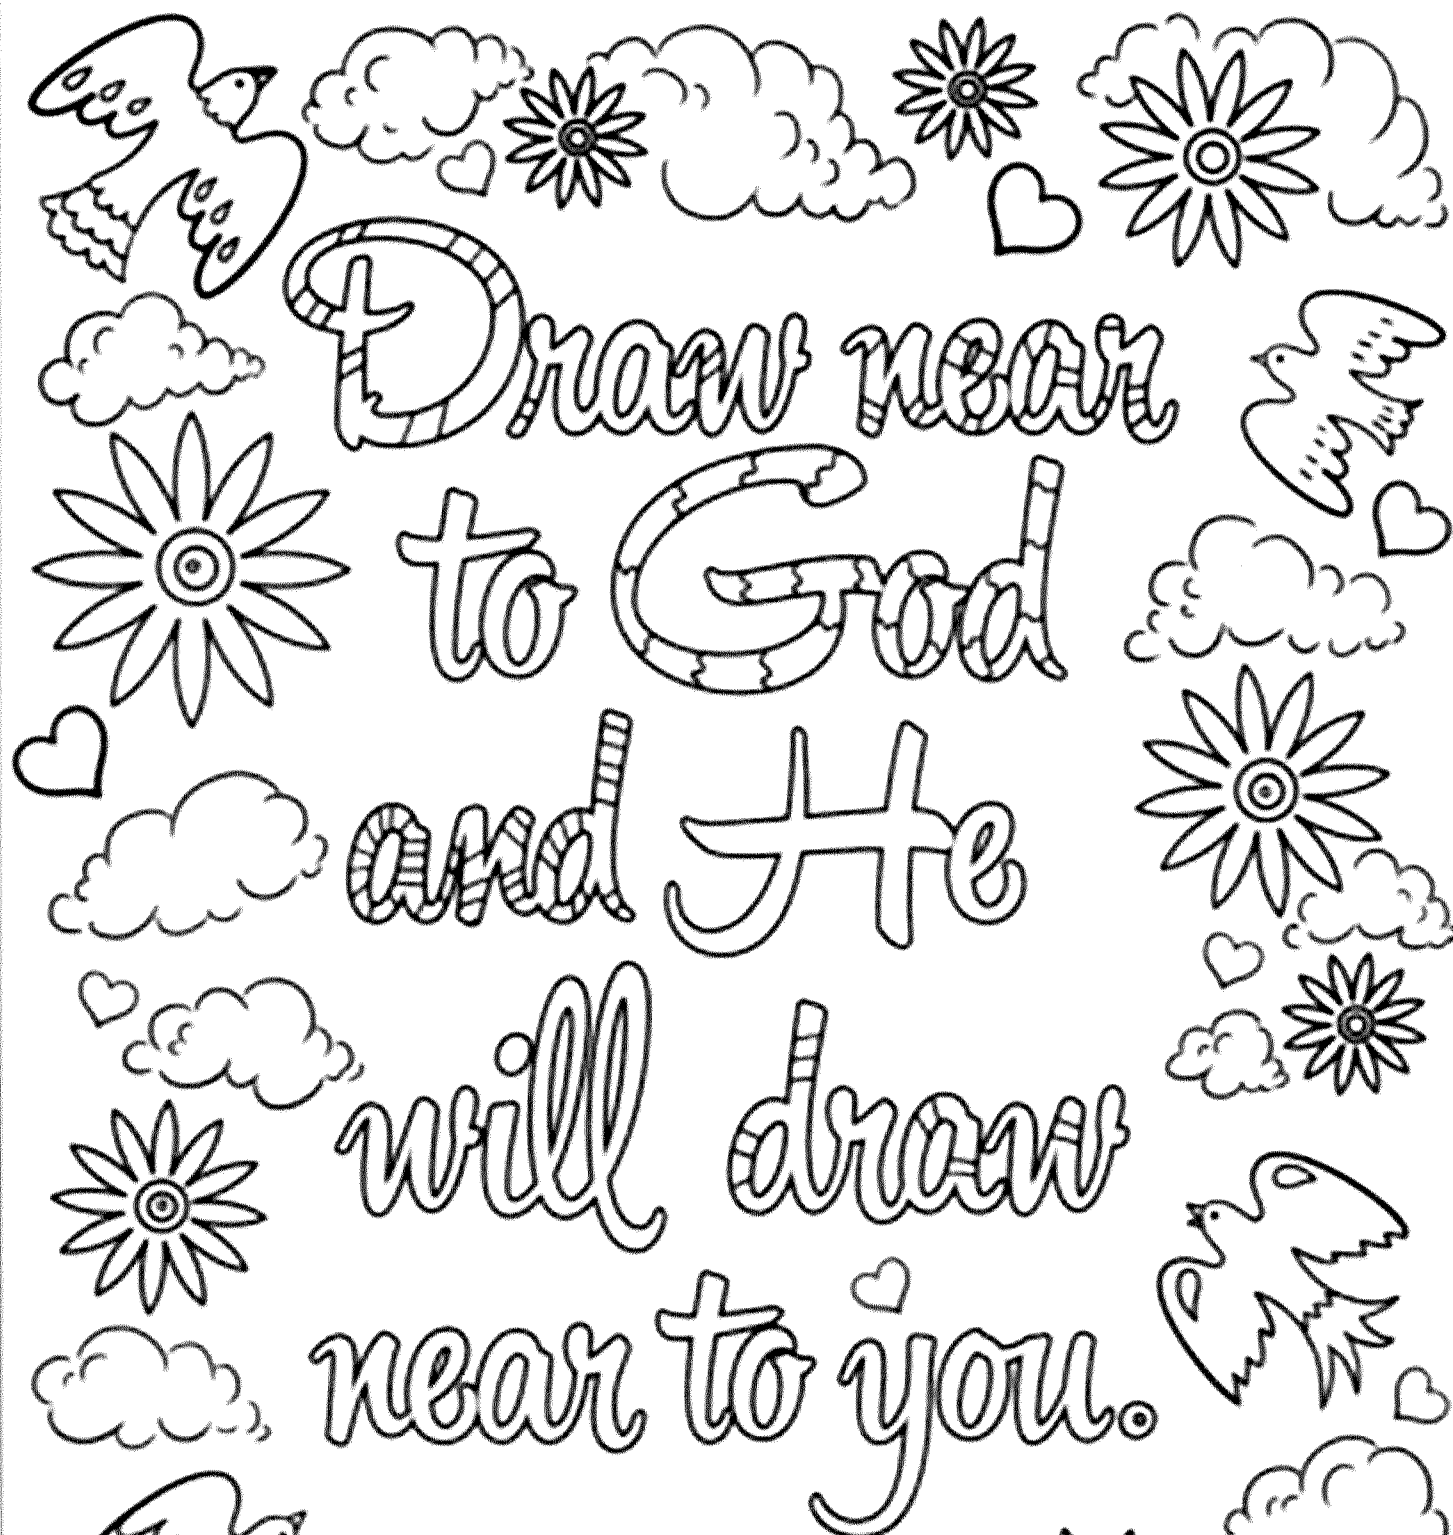 Draw near
to God
and He
will draw
near to you.